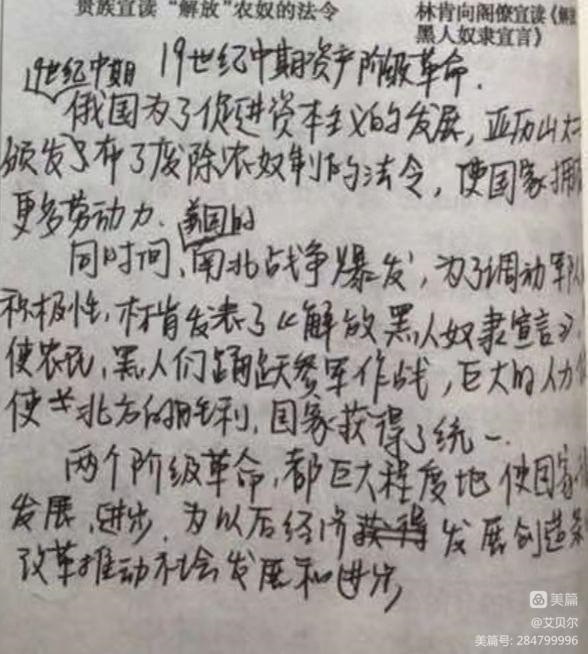 贵族宣读“解放”农奴的法令
林肯向阁僚宣读《解
黑人奴隶宣言》
19世纪中期资产阶级革命.
19世纪中期
俄国为了促进资本主义的发展,亚历山大
颁发了布了废除农奴制的法令,使国家拥
更多劳动力.
美国的
同时间,南北战争爆发,为了调动军队
积极性,林肯发表了《解放黑人奴隶宣言》
使农民,黑人们踊跃参军作战,巨大的人力
使 北方的胜利,国家获得了统一.
两个阶级革命,都巨大程度地使国家
发展,进步,为以后经济获得发展创造条
改革推动社会发展和进步
美篇
@艾贝尔
美篇号: 284799996